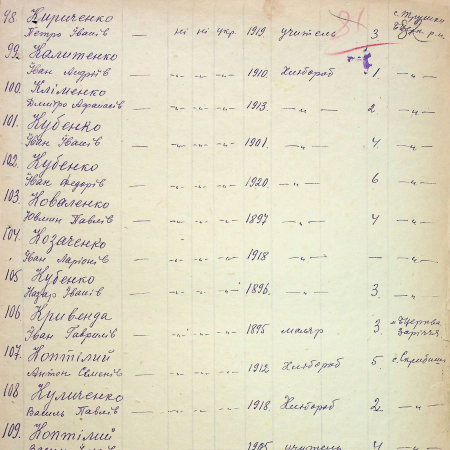 98. Кириченко
Петро Іванів — ні ні укр. 1919 учитель 3 с. Трушки
р-н.
99. Калитенко
Іван Андріїв — -"- -"- -"- 1910. Хлібороб 1. -"-
100. Кліменко
Дмитро Афанасів — -"- -"- -"- 1913. -"- 2 -"-
101. Кубенко
Іван Іванів — -"- -"- -"- 1901. -"- 4 -"-
102. Кубенко
Іван Федорів — -"- -"- -"- 1920. -"- 6 -"-
103. Коваленко
Павлів — -"- -"- -"- 1897 -"- 4 -"-
104. Козаченко
Іван Ларіонів — -"- -"- -"- 1918 -"- — -"-
105 Кубенко
Назар Іванів — -"- -"- -"- 1896. -"- 3. -"-
106 Кривенда
Іван Гаврилів — -"- -"- -"- 1895 маляр 3
Заріччя
107. Коптілий
Антон Семенів — -"- -"- -"- 1912 Хлібороб 5.
108 Куличенко
Василь Павлів — -"- -"- -"- 1918. Хлібороб 2 -"-
109. Коптілий
1905 учитель 4 -"-